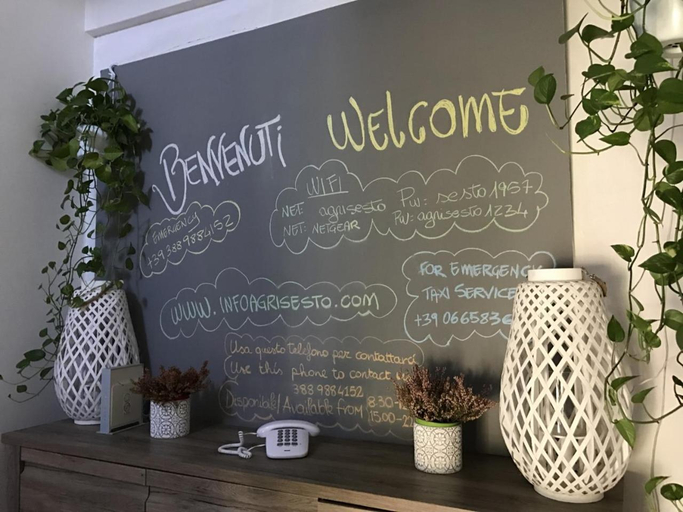 BENVENUTI
WELCOME
WIFI
NET: agrisesto PW: sesto1957
NET: NETGEAR PW: agrisesto1234
EMERGENCY
+39 388 9884152
WWW.INFOAGRISESTO.COM
FOR EMERGENC
TAXI SERVICE
+39 0665836
Usa questo telefono per contattarci
Use this phone to contact
388 9884152
Disponibili/Available from 8:30-
15:00-2